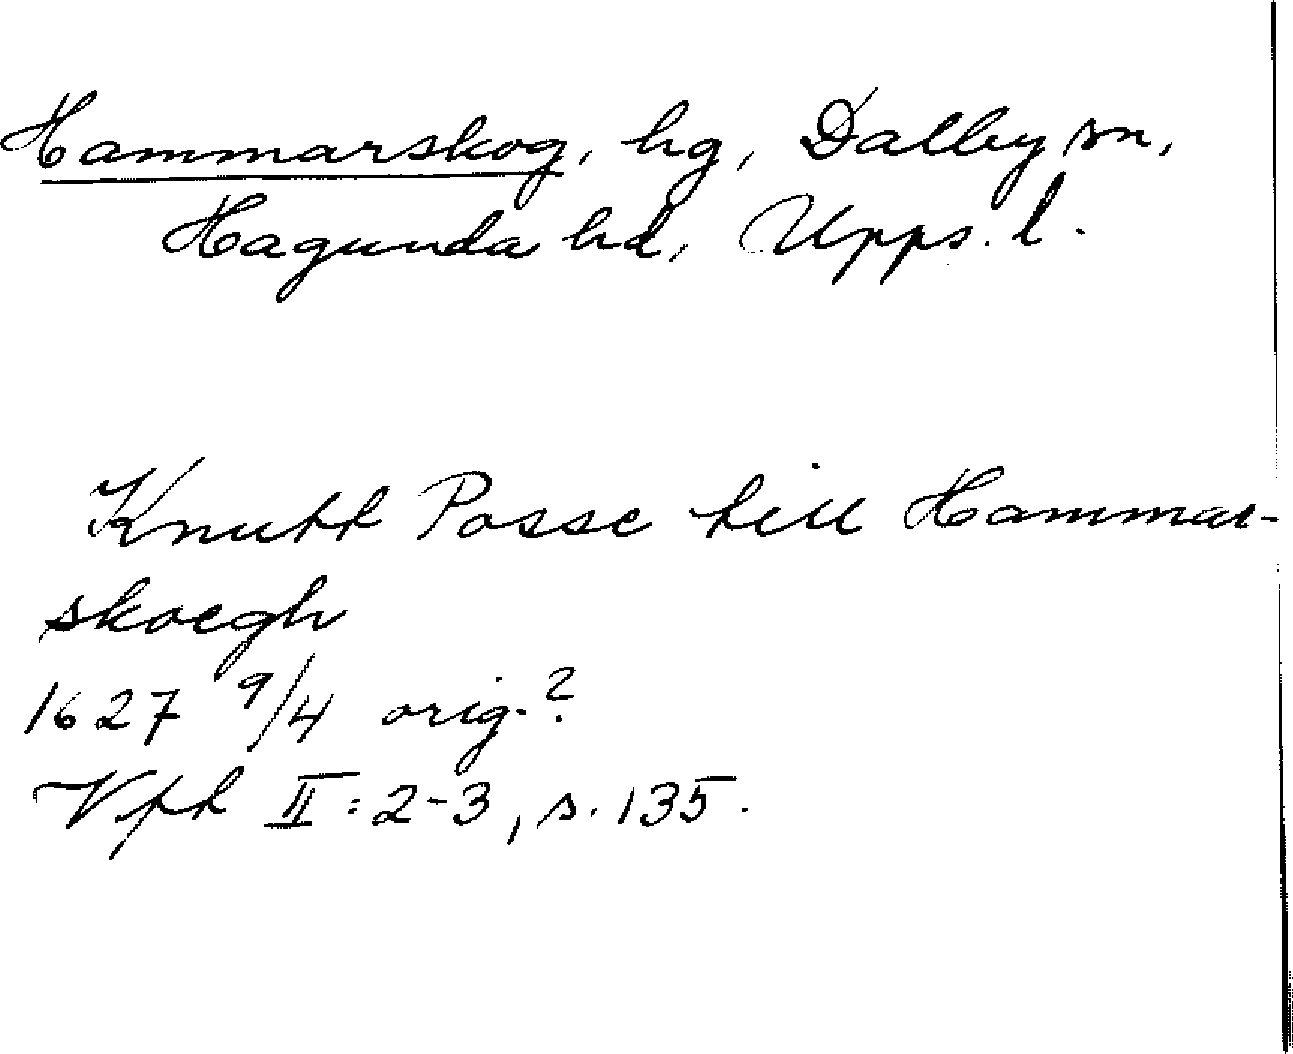 Hammarskog, hg, Dalby sn,
Hagunda hd, Upps. l.
Knutt Posse till Hammar-
skoegh
1627 9/4 orig.?
Vpk II:2-3, s. 135.